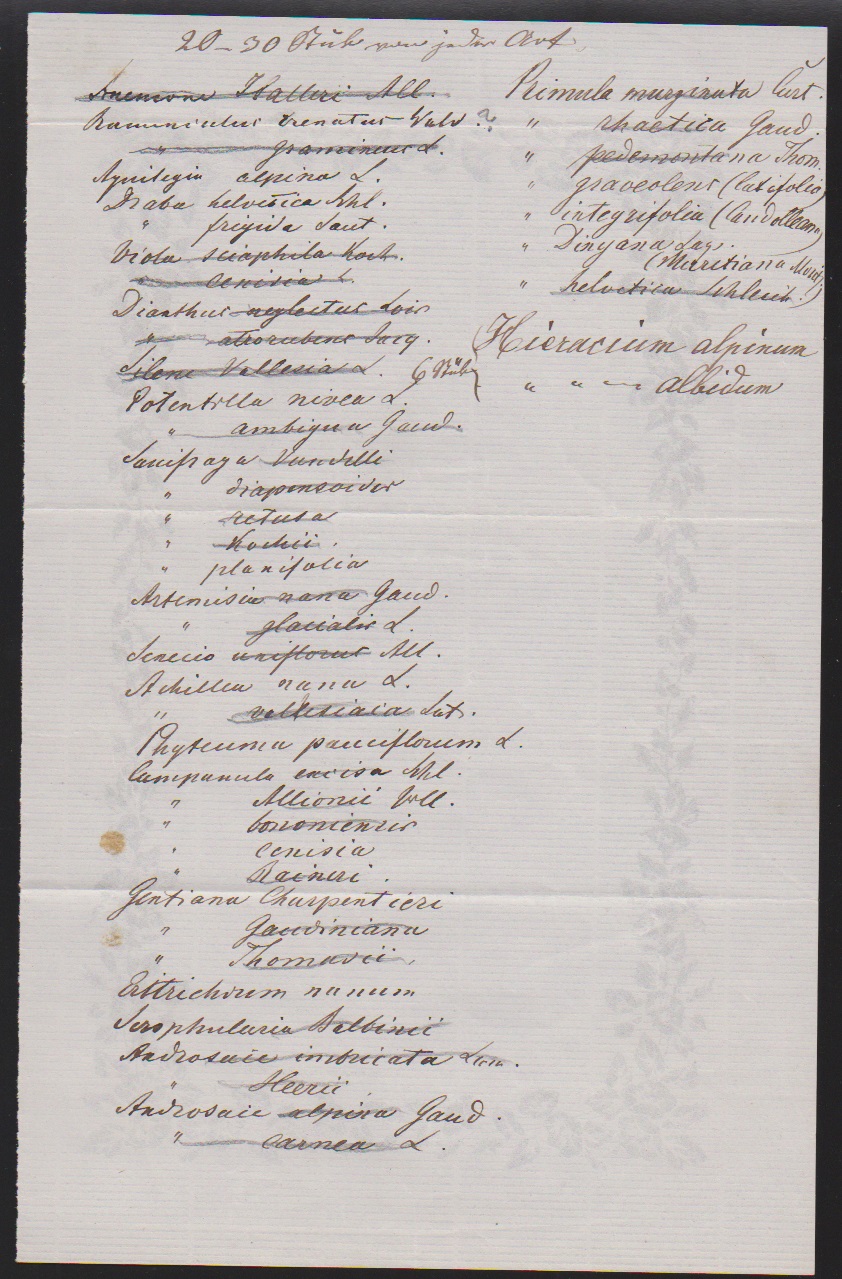 20–30 Stük von jeder Art.
Anemone Halleri All.
Ranunculus crenatus Wald. ?
" gramineus L.
Aquilegia alpina L.
Draba helvetica Schl.
" frigida Saut.
Viola sciaphila Koch.
" cenisia L.
Dianthus neglectus Lois
" atrorubens Jacq.
Silene Vallesia L. 6 Stük
Potentilla nivea L.
" ambigua Gaud.
Saxifraga Vandelli
" diapensoides
" retusa
" Kochii.
" planifolia
Artemisia nana Gaud.
" glacialis L.
Senecio uniflorus All.
Achillea nana L.
" vallesiaca
Phyteuma pauciflorum L.
Campanula excisa Schl.
" Allionii Vill.
" bononiensis
" cenisia
" Raineri.
Gentiana Charpentieri
" Gaudiniana
" Thomasii.
Erítrichium nanum
Scrophularia Balbisii
Androsace imbricata Lam.
" Heerii
Androsace alpina Gaud.
" carnea L.
Primula marginata Curt.
" rhaetica Gaud.
" pedemontana Thom.
" graveolens (latifolia)
" integrifolia (Candolleana)
" Dinyana Lag.
(Muretiana Moritzi)
" helvetica Schleich.
Hieracium alpinum
" " — albidum